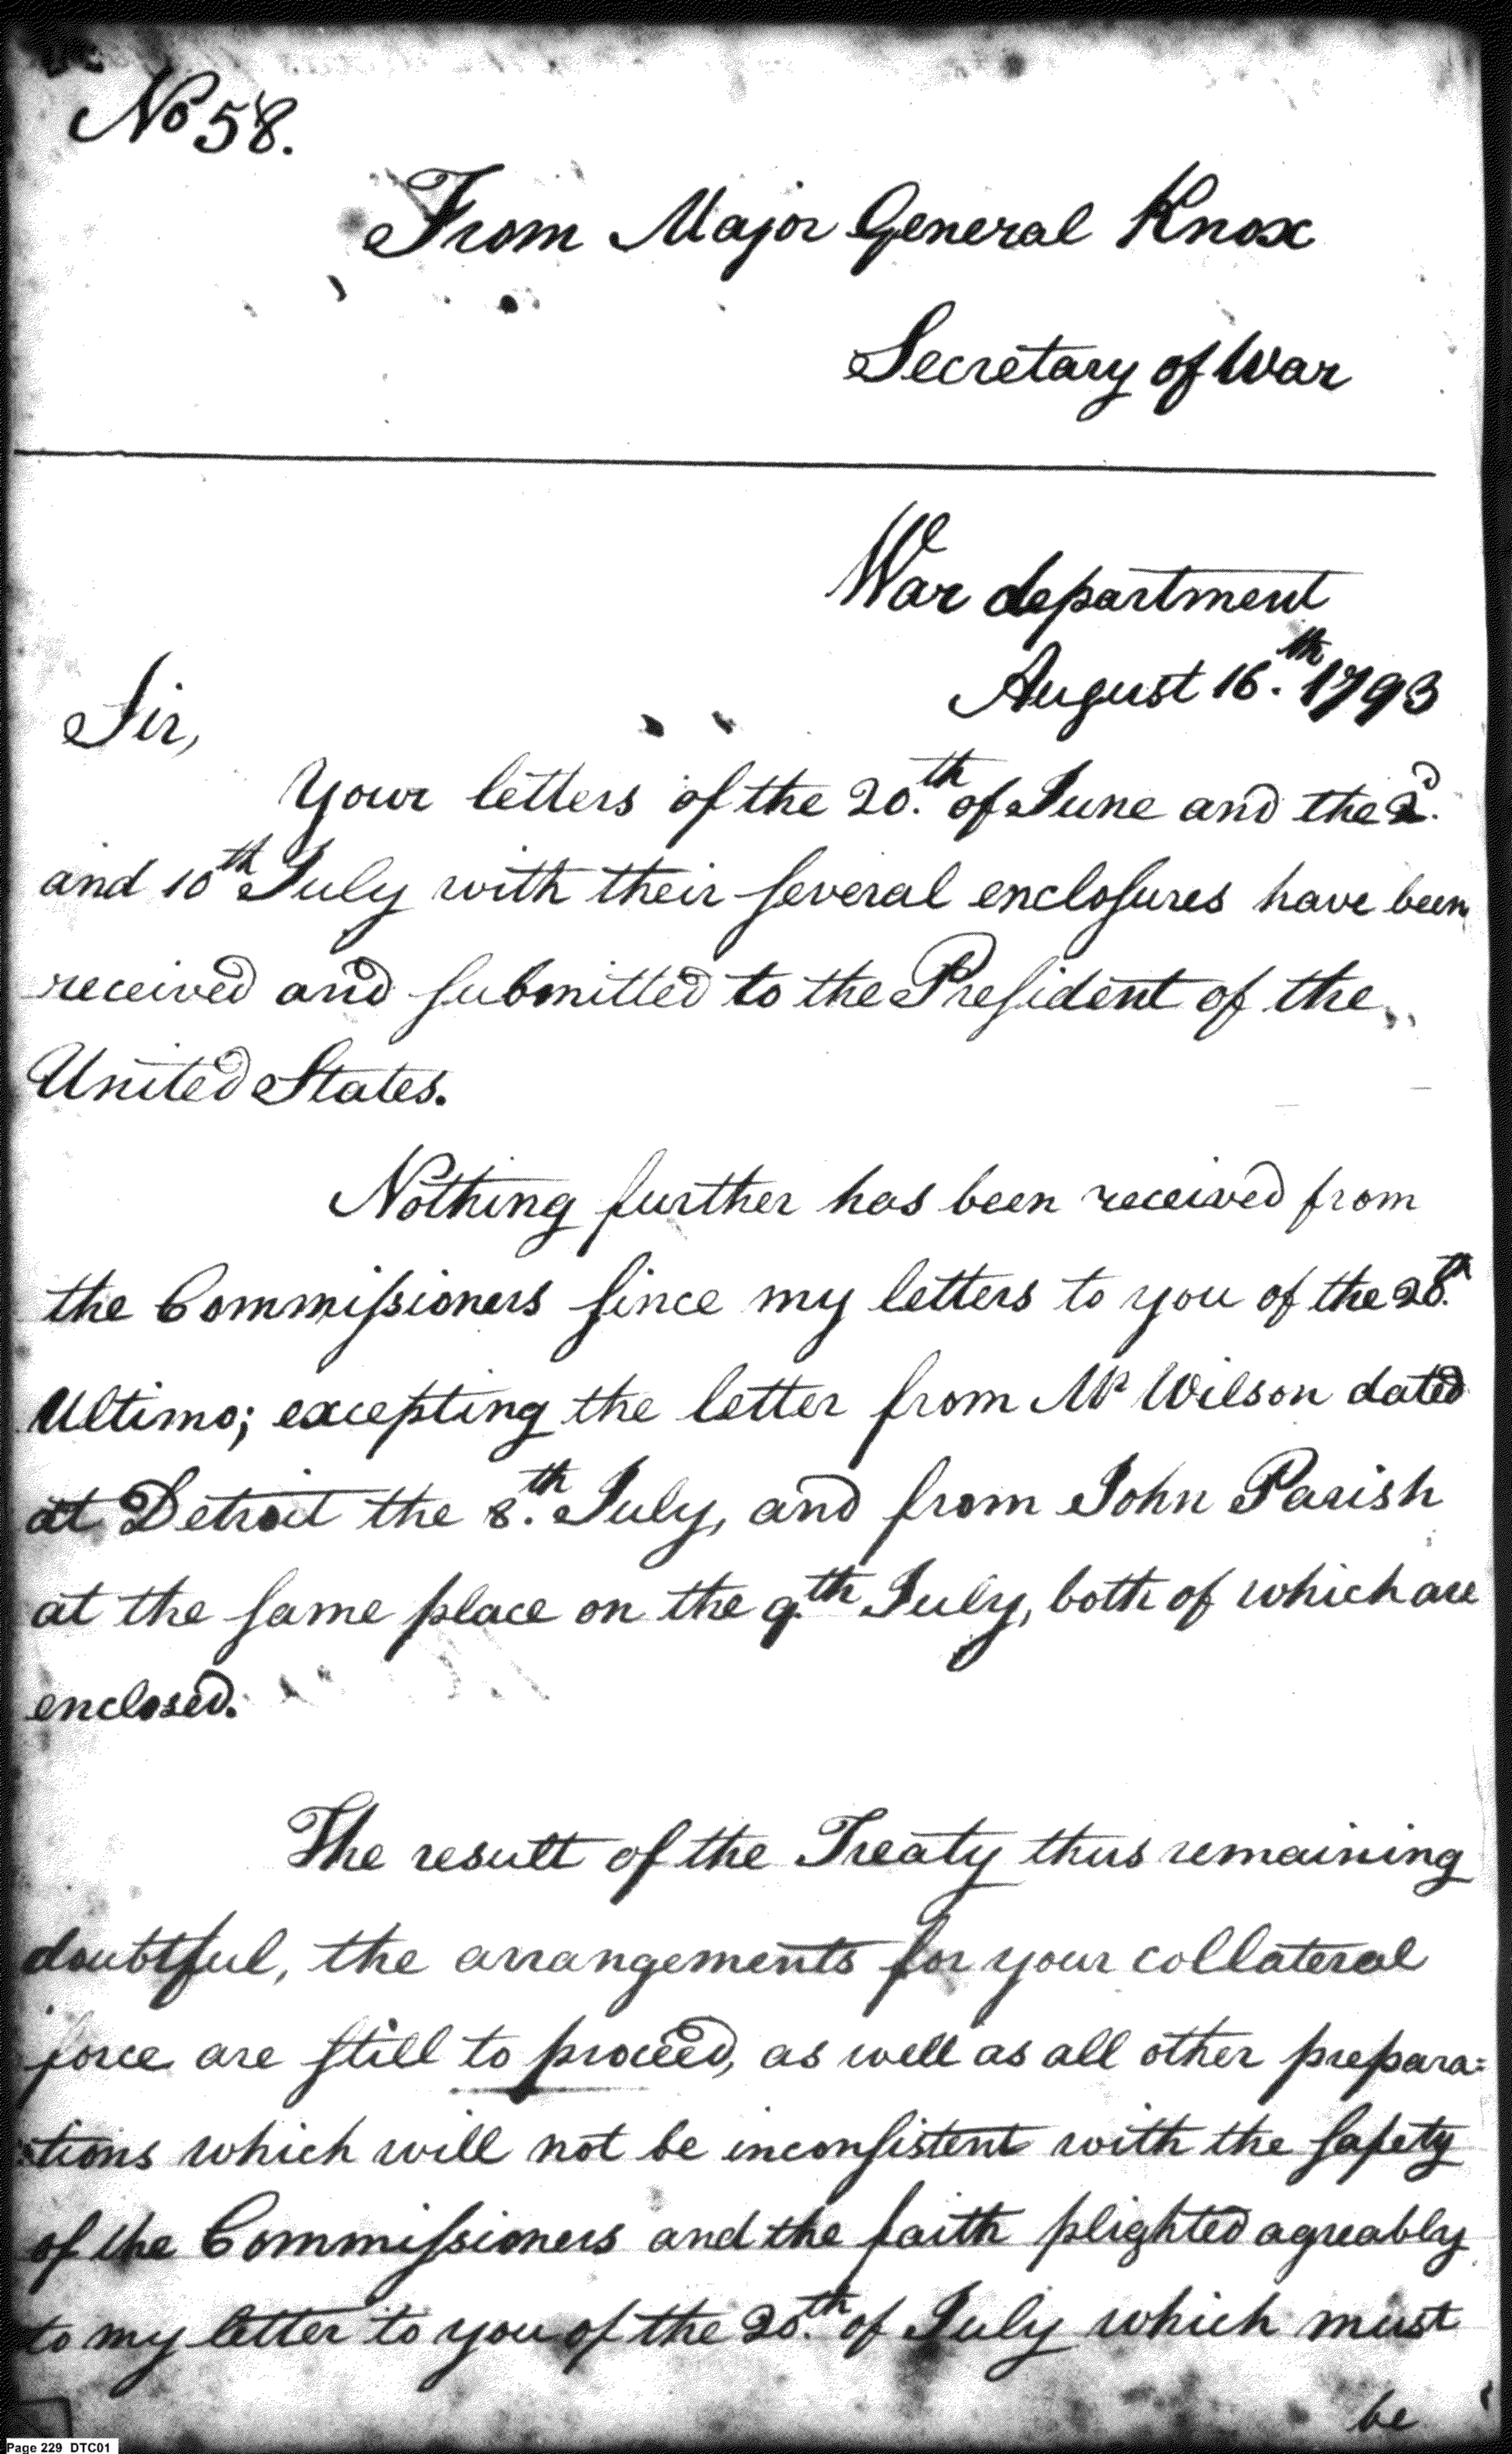 No 58.
From Major General Knox
Secretary of War
War department
August 16.th 1793
Sir,
Your letters of the 20.th of June and the 2d.
and 10th July with their several enclosures have been
received and submitted to the President of the
United States.
Nothing further has been received from
the Commissioners since my letters to you of the 28.th
Ultimo; excepting the letter from Mr Wilson dated
at Detroit the 8.th July, and from John Parish
at the same place on the 9.th July, both of which are
enclosed.
The result of the Treaty thus remaining
doubtful, the arrangements for your collateral
force are still to proceed, as well as all other prepara=
=tions which will not be inconsistent with the safety
of the Commissioners and the faith plighted agreably
to my letter to you of the 20.th of July which must
be
Page 229 DTC01